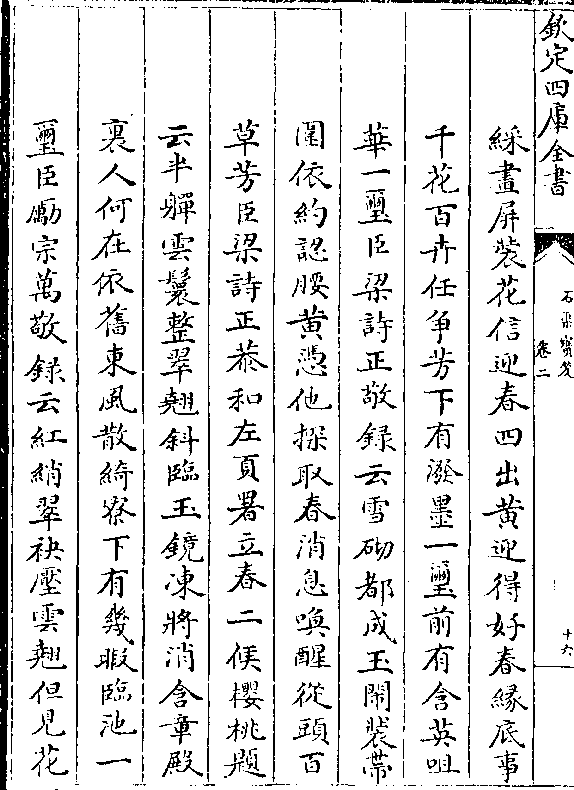 欽定四庫全書
石渠寳笈
卷二
十六
綵畫屏裝花信迎春四出黄迎得好春縁底事
千花百卉任争芳下有潑墨一璽前有含英咀
華一璽臣梁詩正敬録云雪砌都成玉閙裝帶
圍依約認腰黄憑他探取春消息喚醒從頭百
草芳臣梁詩正恭和左頁署立春二候櫻桃題
云半嚲雲鬟整翠翹斜臨玉鏡凍將消含章殿
裏人何在依舊東風散綺寮下有幾暇臨池一
璽臣勵宗萬敬録云紅綃翠袂壓雲翹但見花